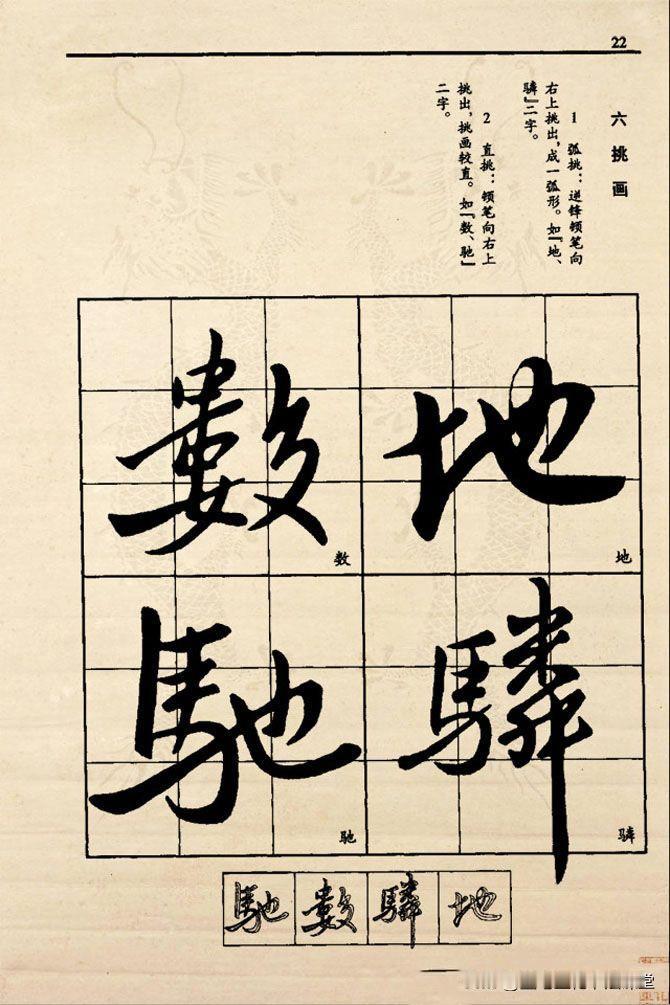 22
六 挑 画
1 弧挑：逆锋顿笔向
右上挑出，成一弧形。如『地、
𬴊』二字。
2 直挑：顿笔向右上
挑出，挑画较直。如『数、驰』
二字。
地
地
驎
𬴊
數
数
馳
驰
馳 數 驎 地